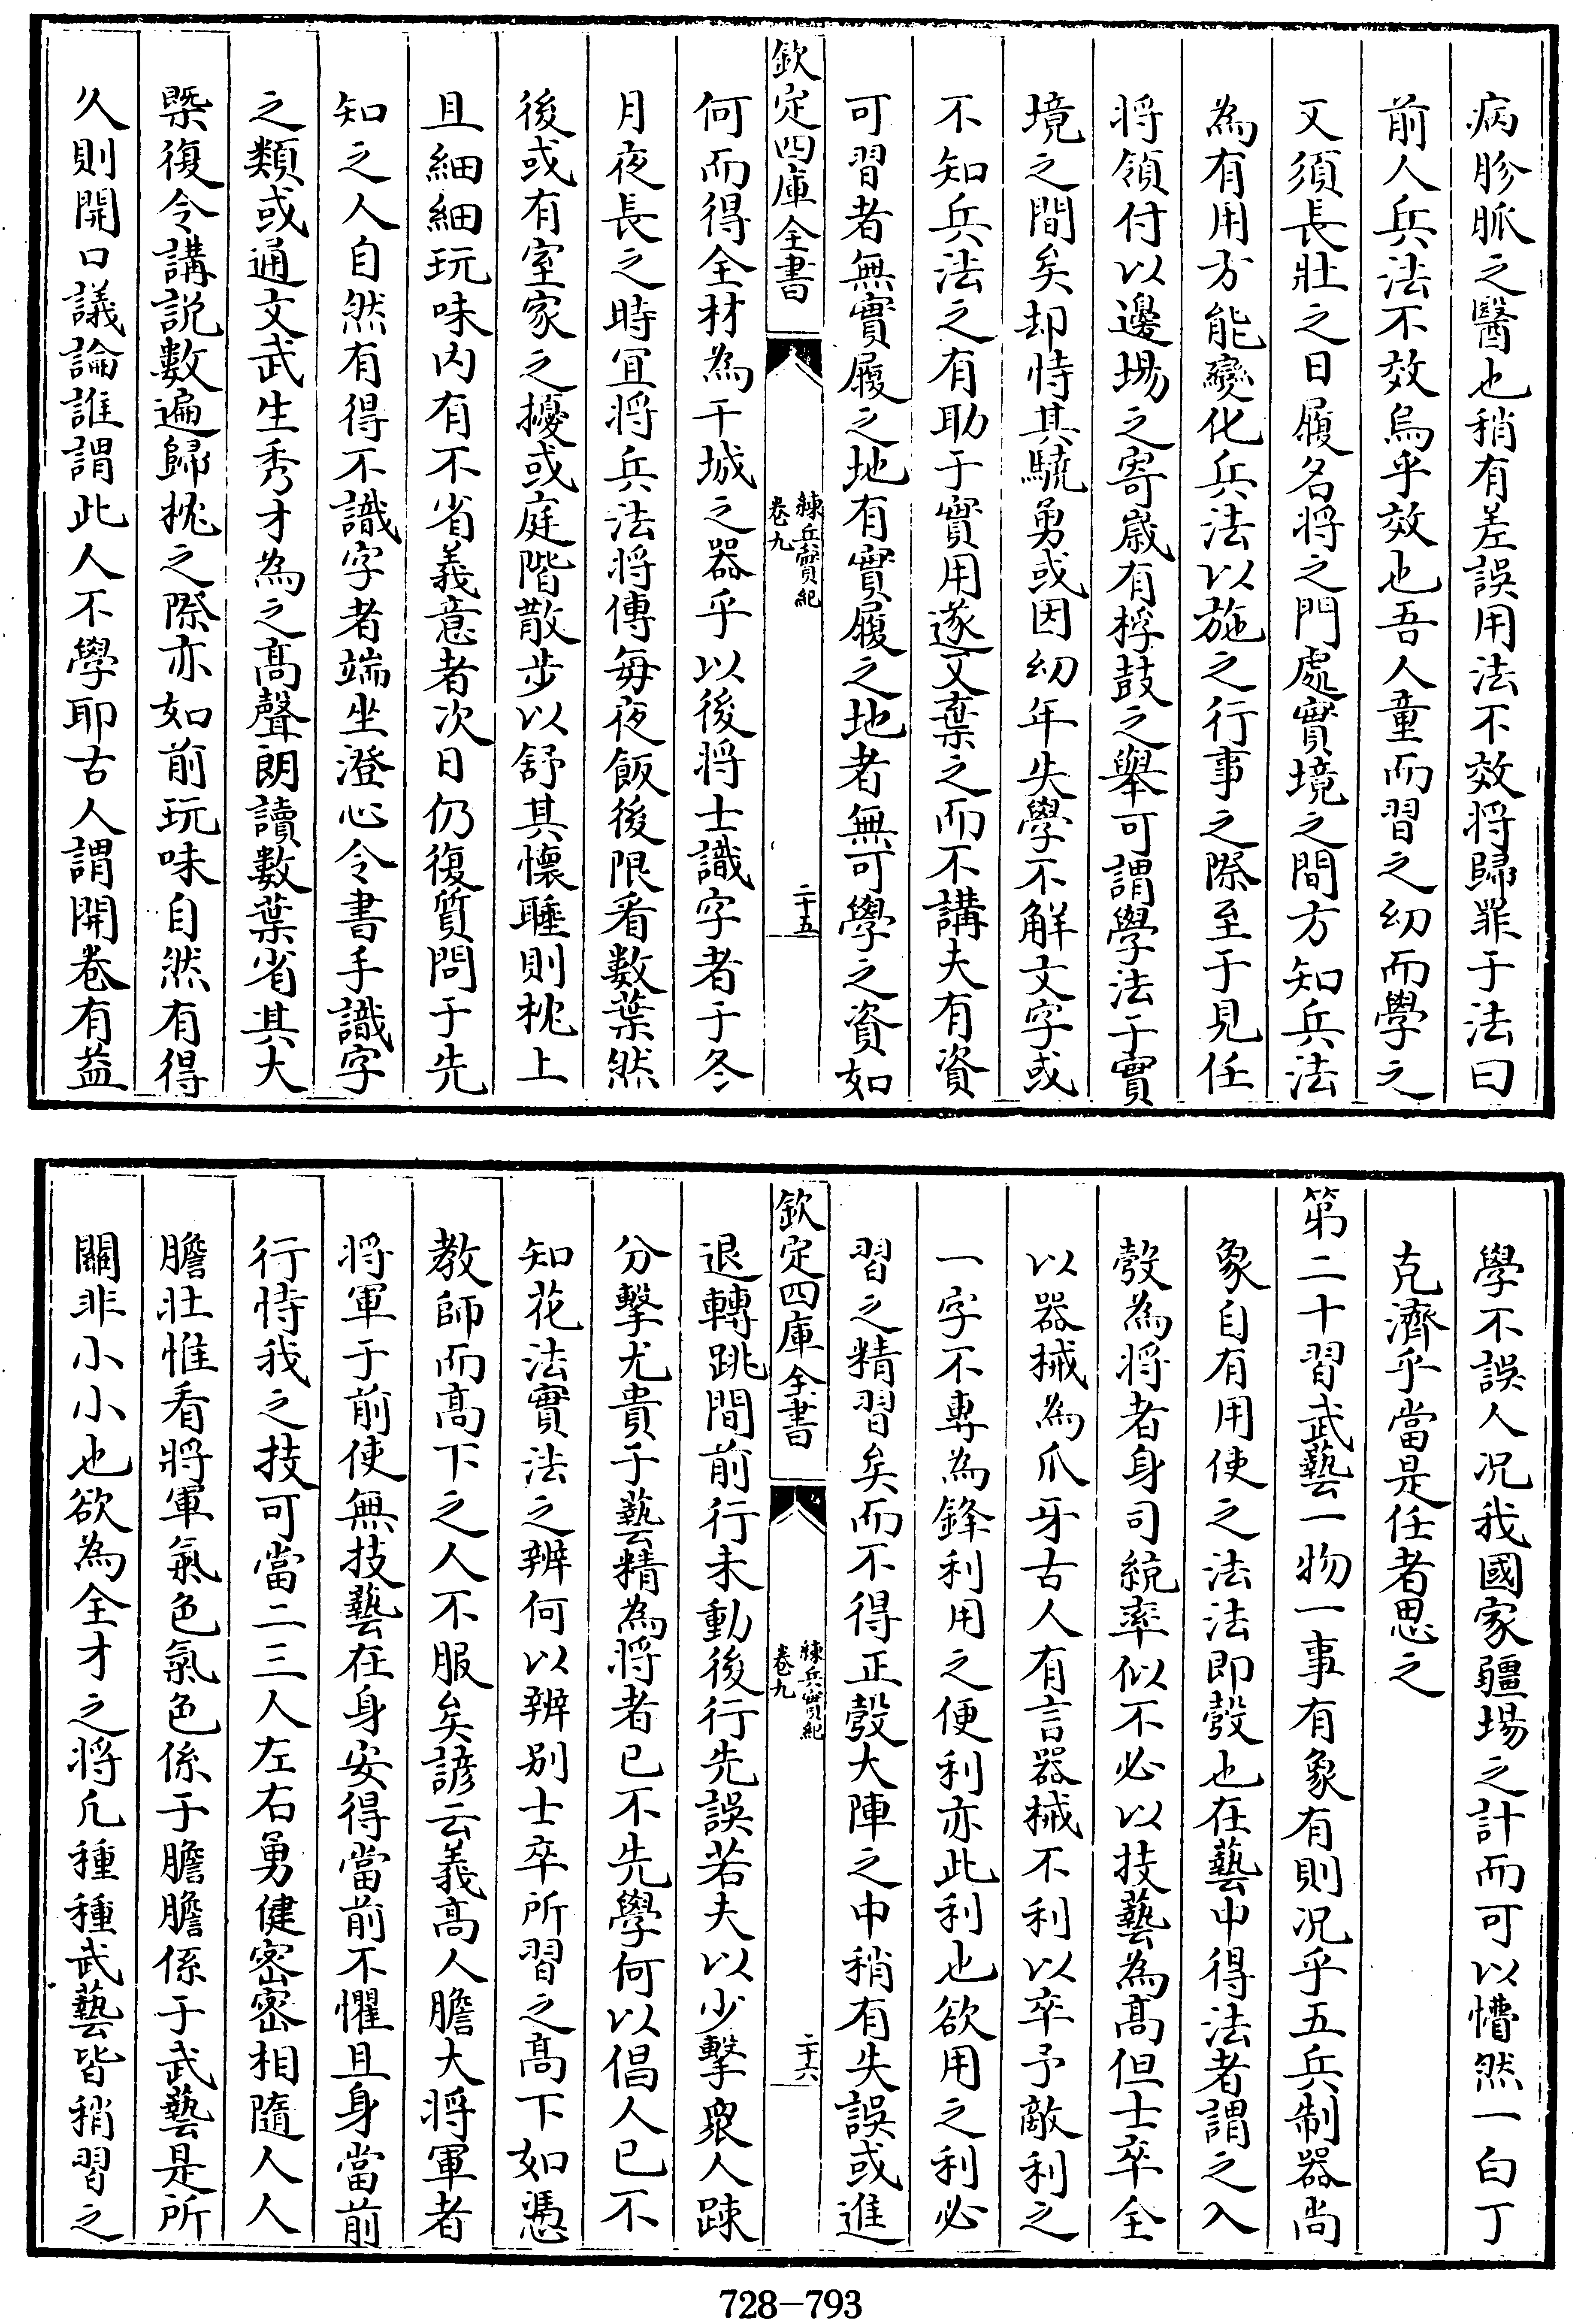 病胗脈之醫也稍有差誤用法不效将歸罪于法曰
前人兵法不效烏乎效也吾人童而習之幼而學之
又須長壯之日履名将之門處實境之間方知兵法
為有用方能變化兵法以施之行事之際至于見任
将領付以邊場之寄嵗有桴鼓之舉可謂學法于實
境之間矣却恃其驍勇或因幼年失學不解文字或
不知兵法之有助于實用遂又棄之而不講夫有資
可習者無實履之地有實履之地者無可學之資如
欽定四庫全書
練兵實紀
卷九
二十五
何而得全材為干城之器乎以後将士識字者于冬
月夜長之時宜将兵法将傳每夜飯後限看數葉然
後或有室家之擾或庭階散步以舒其懷睡則枕上
且細細玩味内有不省義意者次日仍復質問于先
知之人自然有得不識字者端坐澄心令書手識字
之類或通文武生秀才為之髙聲朗讀數葉省其大
槩復令講説數遍歸枕之際亦如前玩味自然有得
久則開口議論誰謂此人不學耶古人謂開卷有益
學不誤人况我國家疆場之計而可以懵然一白丁
克濟乎當是任者思之
第二十習武藝一物一事有象有則况乎五兵制器尚
象自有用使之法法即彀也在藝中得法者謂之入
彀為将者身司統率似不必以技藝為髙但士卒全
以器械為爪牙古人有言器械不利以卒予敵利之
一字不專為鋒利用之便利亦此利也欲用之利必
習之精習矣而不得正彀大陣之中稍有失誤或進
欽定四庫全書
練兵實紀
卷九
二十六
退轉跳間前行未動後行先誤若夫以少擊衆人疎
分擊尤貴于藝精為将者已不先學何以倡人已不
知花法實法之辨何以辨别士卒所習之髙下如憑
教師而髙下之人不服矣諺云義髙人膽大将軍者
将軍于前使無技藝在身安得當前不懼且身當前
行恃我之技可當二三人左右勇健密密相隨人人
膽壯惟看將軍氣色氣色係于膽膽係于武藝是所
關非小小也欲為全才之将凢種種武藝皆稍習之
728－793